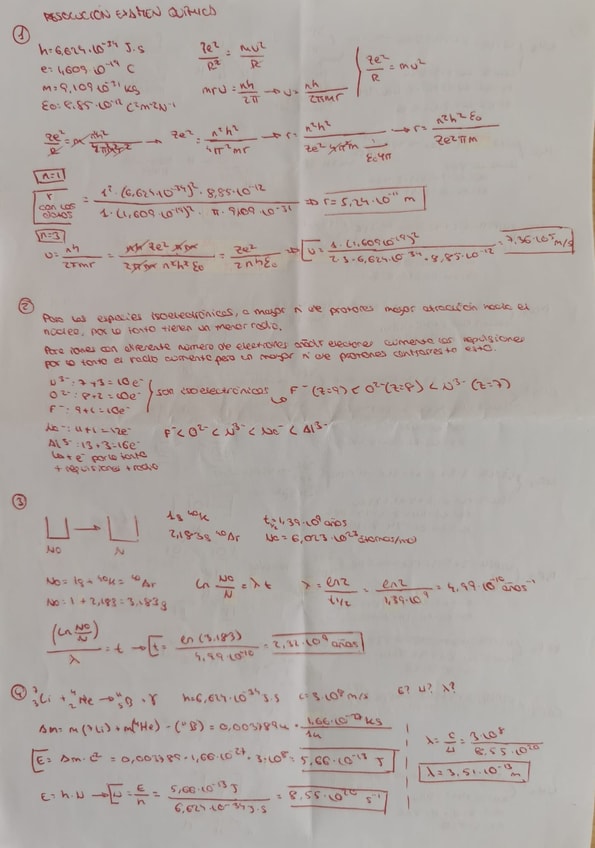 RESOLUCIÓN EXAMEN QUÍMICA
①
h=6,624·10⁻³⁴ J·s
e=1,609·10⁻¹⁹ C
m=9,109·10⁻³¹ kg
ε₀=8,85·10⁻¹² C²m⁻²N⁻¹
Ze²/R² = mv²/R
mrv = nh/2π → v = nh/2πmr
Ze²/R = mv²
→ Ze² = n²h²/4π²mr → r = n²h²/(Ze² 4π²m 1/ε₀4π) → r = n²h²ε₀/Ze²πm
n=1
r con los datos = 1²·(6,624·10⁻³⁴)²·8,85·10⁻¹² / 1·(1,609·10⁻¹⁹)²·π·9,109·10⁻³¹ ⇒ r=5,24·10⁻¹¹ m
n=3
v = nh/2πmr = Ze²/2nhε₀ ⇒ v = 1·(1,609·10⁻¹⁹)² / 2·3·6,624·10⁻³⁴·8,85·10⁻¹² = 7,36·10⁵ m/s
②
Para las especies isoelectrónicas, a mayor nº de protones mayor atracción hacia el
núcleo, por lo tanto tienen un menor radio.
Para iones con diferente número de electrones añadir electrones aumenta las repulsiones
por lo tanto el radio aumenta pero un mayor nº de protones contrarresta esto.
N³⁻: 7+3=10e⁻
O²⁻: 8+2=10e⁻
F⁻: 9+1=10e⁻
son isoelectrónicos
F⁻ (Z=9) < O²⁻ (Z=8) < N³⁻ (Z=7)
Na⁻: 11+1=12e⁻
Al³⁻: 13+3=16e⁻
F⁻ < O²⁻ < N³⁻ < Na⁻ < Al³⁻
+ e⁻ por lo tanto
+ repulsiones + radio
③
N₀ → N
1g ⁴⁰K
2,183g ⁴⁰Ar
t½=1,39·10⁹ años
Na=6,023·10²³ átomos/mol
N₀=1g + ⁴⁰K = ⁴⁰Ar
N₀=1+2,183=3,183g
ln N₀/N = λt
λ = ln2/t1/2 = ln2/1,39·10⁹ = 4,99·10⁻¹⁰ años⁻¹
(ln N₀/N)/λ = t → t = ln(3,183)/4,99·10⁻¹⁰ = 2,32·10⁹ años
④
⁷₃Li + ⁴₂He → ¹¹₅B + γ
h=6,624·10⁻³⁴ J·s
c=3·10⁸ m/s
E? ν? λ?
Δm = m(⁷Li)+m(⁴He) - (¹¹B) = 0,003789u · 1,66·10⁻²⁷ kg/1u
E = Δm·c² = 0,003789·1,66·10⁻²⁷·3·10⁸ = 5,66·10⁻¹³ J
E=h·ν → ν = E/h = 5,66·10⁻¹³ J / 6,624·10⁻³⁴ J·s = 8,55·10²⁰ s⁻¹
λ = c/ν = 3·10⁸ / 8,55·10²⁰
λ=3,51·10⁻¹³ m